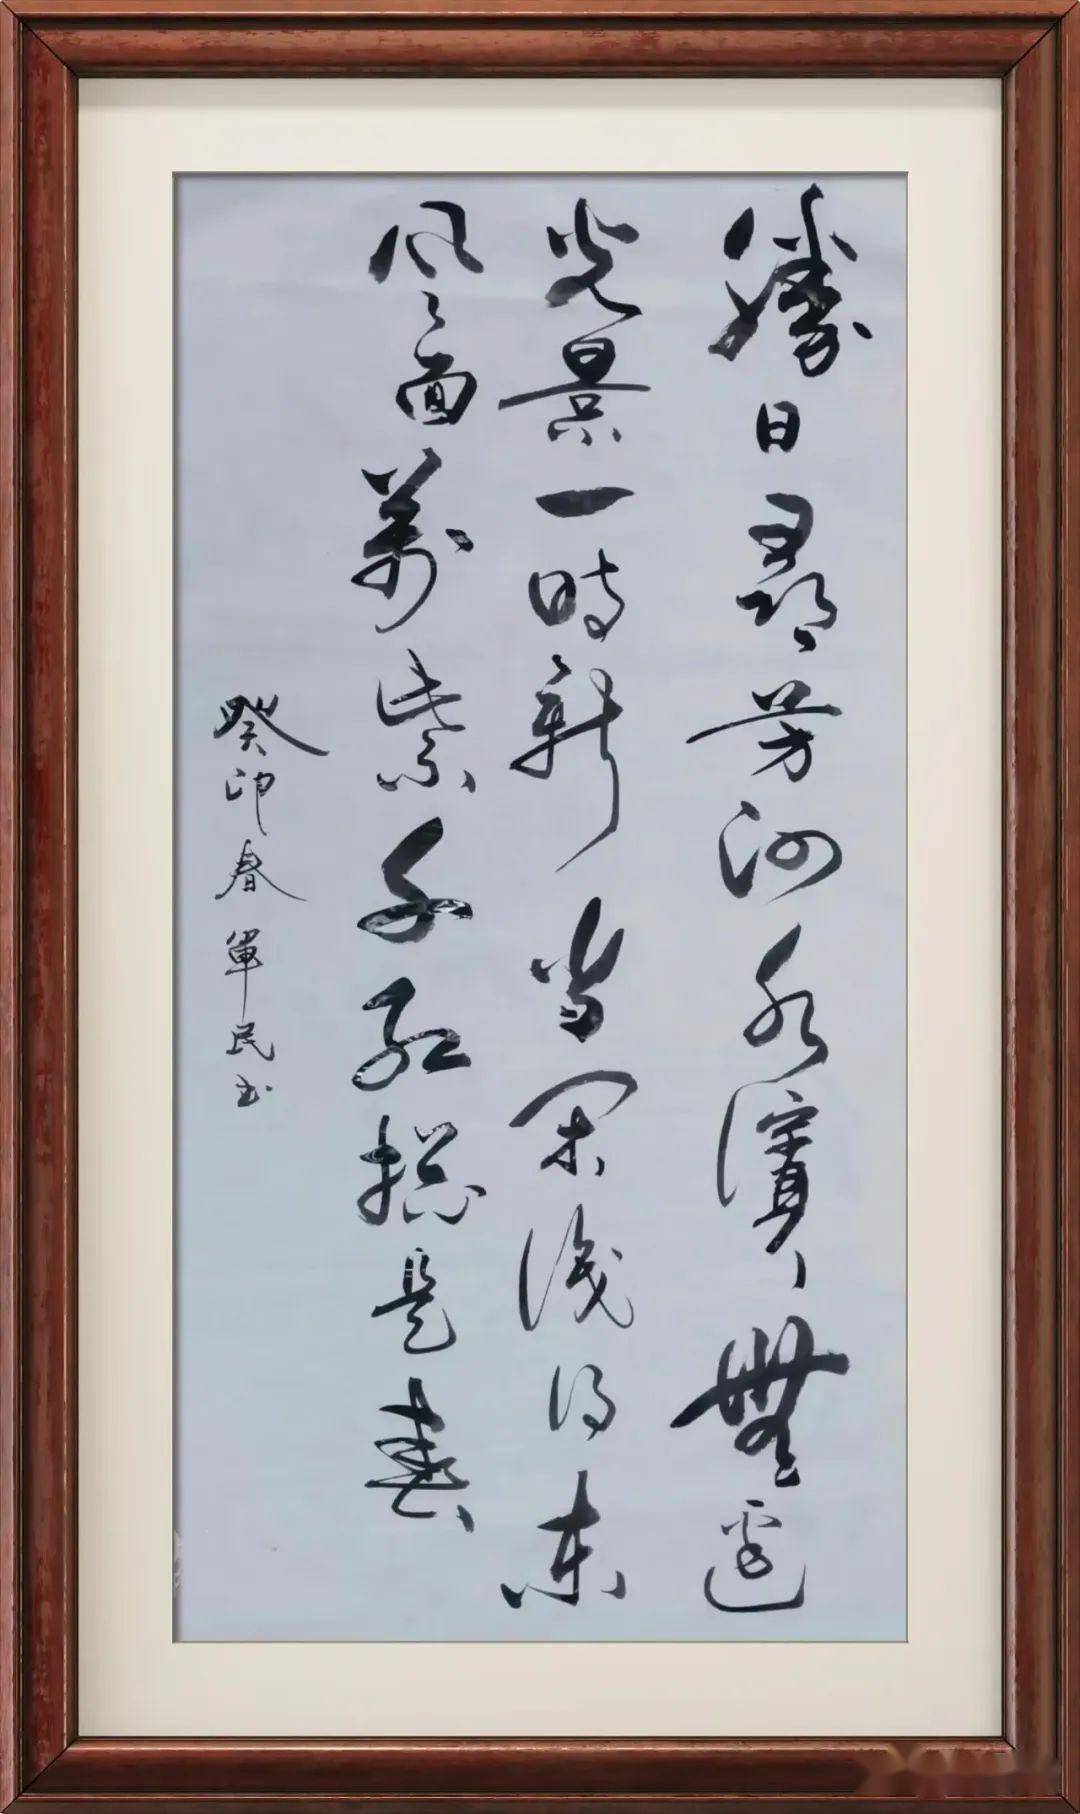 勝日尋芳泗水濱無邊
光景一時新等閑識得東
風面萬紫千紅總是春
癸卯春軍民书